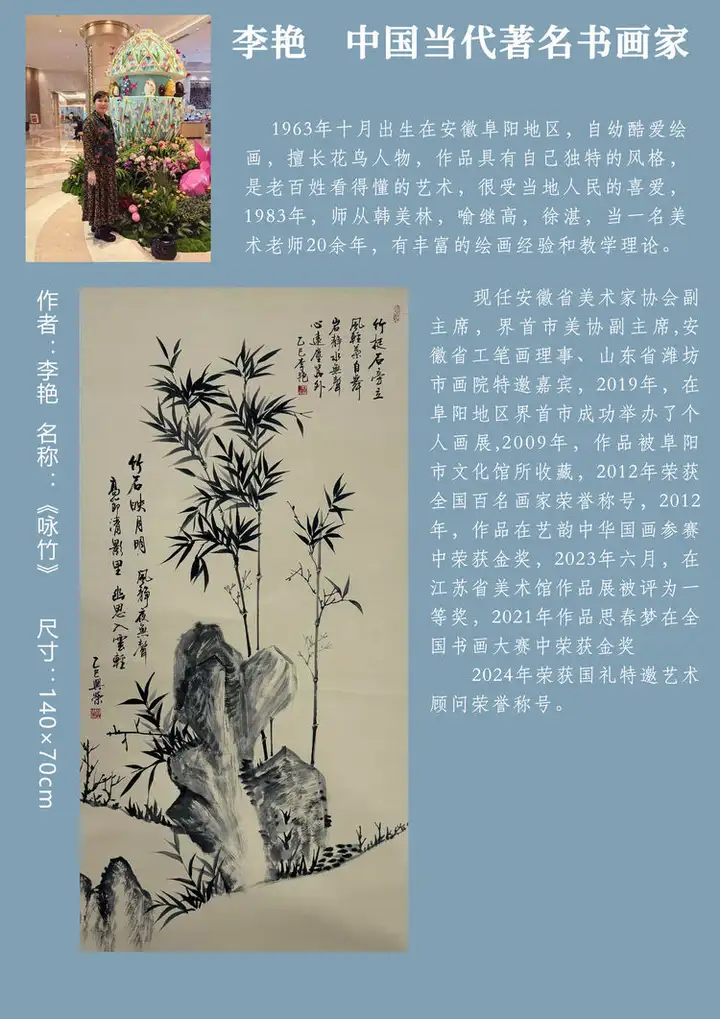 李艳 中国当代著名书画家
1963年十月出生在安徽阜阳地区，自幼酷爱绘
画，擅长花鸟人物，作品具有自己独特的风格，
是老百姓看得懂的艺术，很受当地人民的喜爱，
1983年，师从韩美林，喻继高，徐湛，当一名美
术老师20余年，有丰富的绘画经验和教学理论。
作者：李艳 名称：《咏竹》 尺寸：140×70cm
现任安徽省美术家协会副
主席，界首市美协副主席,安
徽省工笔画理事、山东省潍坊
市画院特邀嘉宾，2019年，在
阜阳地区界首市成功举办了个
人画展,2009年，作品被阜阳
市文化馆所收藏，2012年荣获
全国百名画家荣誉称号，2012
年，作品在艺韵中华国画参赛
中荣获金奖，2023年六月，在
江苏省美术馆作品展被评为一
等奖，2021年作品思春梦在全
国书画大赛中荣获金奖
2024年荣获国礼特邀艺术
顾问荣誉称号。
竹挺石旁立
風輕葉自舞
岩静水無聲
心遠塵囂外
乙巳李艳
竹石映月明 風静夜無聲
高節清影里 幽思入雲輕
乙巳興榮